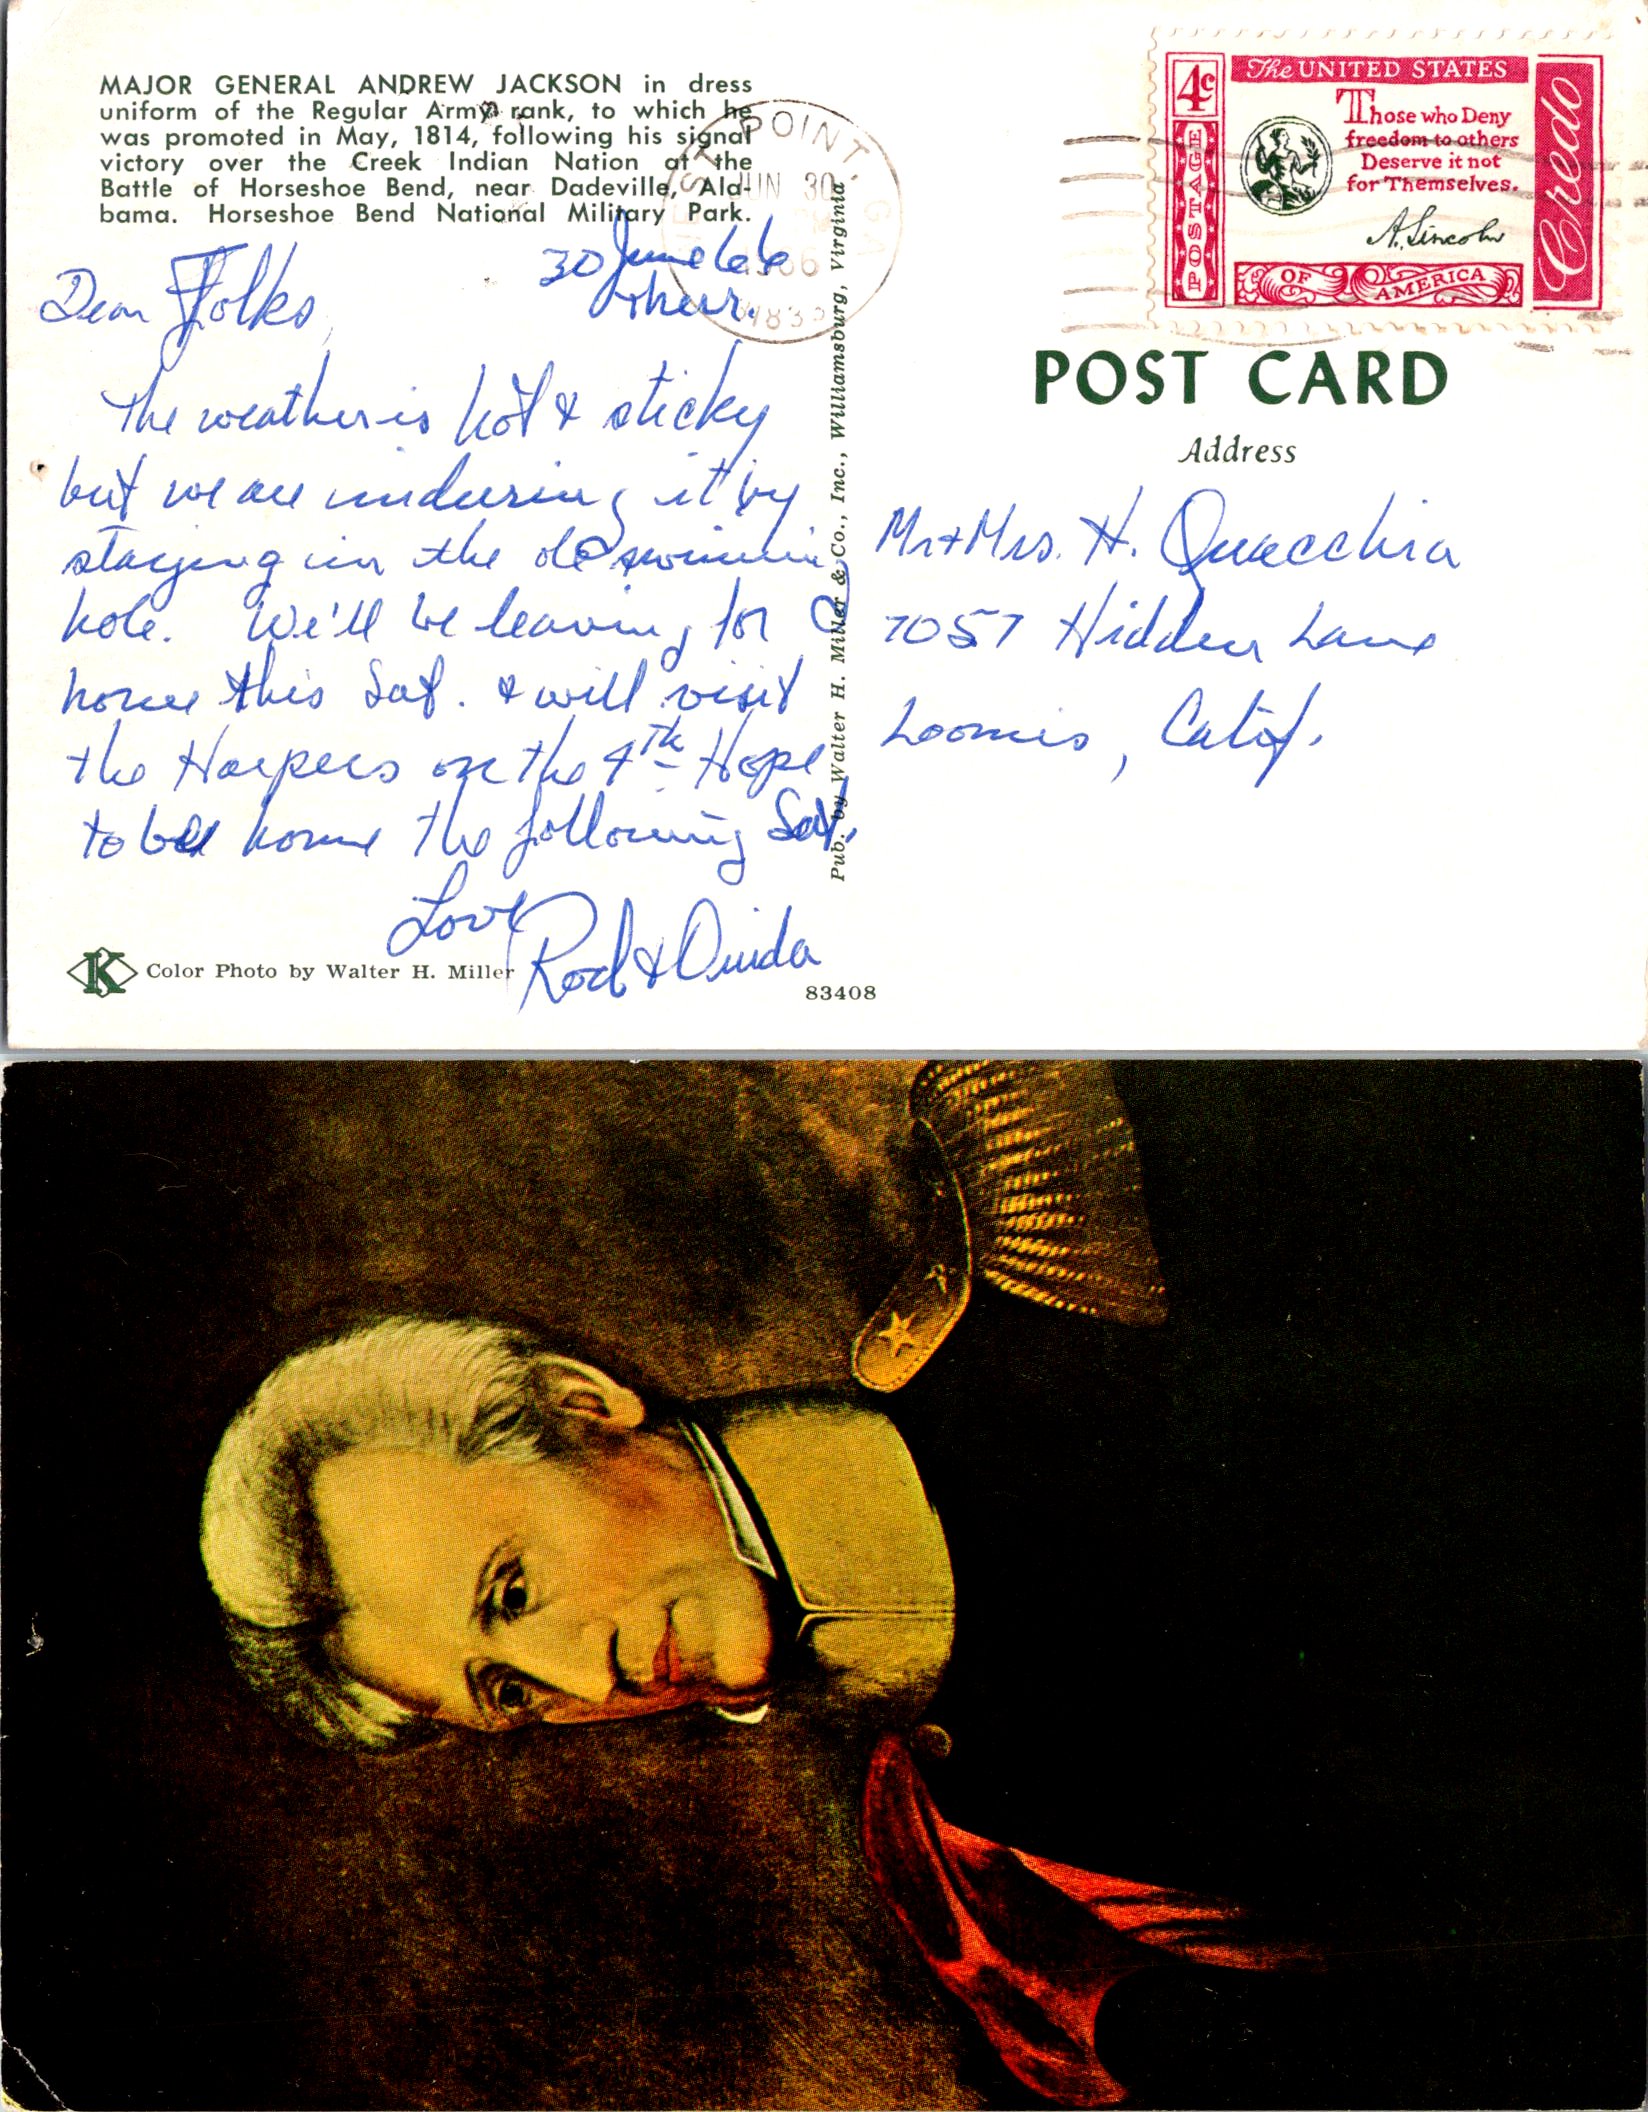 MAJOR GENERAL ANDREW JACKSON in dress
uniform of the Regular Army rank, to which he
was promoted in May, 1814, following his signal
victory over the Creek Indian Nation at the
Battle of Horseshoe Bend, near Dadeville, Ala-
bama. Horseshoe Bend National Military Park.
WEST POINT, GA
JUN 30
1966
31833
30 June 66
Thur.
Dear Folks,
The weather is hot & sticky
but we are induring it by
staying in the old swimming
hole. We'll be leaving for
home this Sat. & will visit
the Harpers on the 4th Hope
to be home the following Sat.
Love
Rod &
K Color Photo by Walter H. Miller
83408
Pub. by Walter H. Miller & Co., Inc., Williamsburg, Virginia
4c
POSTAGE
The UNITED STATES
Those who Deny
freedom to others
Deserve it not
for Themselves.
A. Lincoln
OF AMERICA
Credo
POST CARD
Address
Mr + Mrs. H. Quacchia
7057 Hidden Lane
Loomis, Calif.